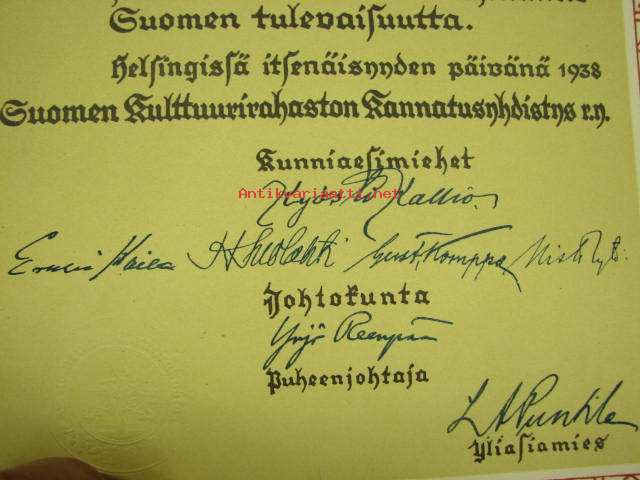 Suomen tulevaisuutta.
Helsingissä itsenäisyyden päivänä 1938
Suomen Kulttuurirahaston Kannatusyhdistys r.y.
Kunniaesimiehet
Antikvariaatti.net
Kyösti Kallio.
Eemeli Haila H. Suolahti Gust. Komppa Risto Ryti.
Johtokunta
Yrjö Reenpää
Puheenjohtaja
L A Puntila
Yliasiamies